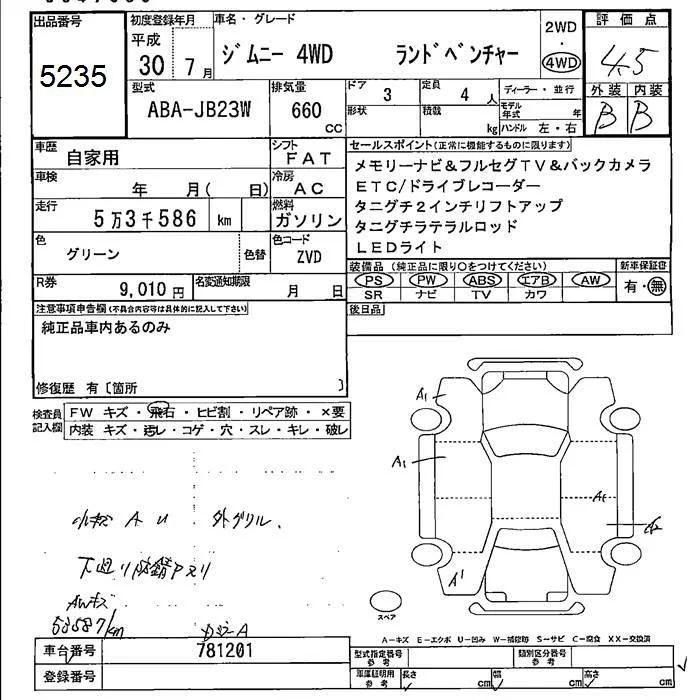 出品番号
5235
初度登録年月
平成
30 7月
車名・グレード
ジムニー 4WD ランドベンチャー
2WD
・
4WD
評価点
4.5
外装 内装
B B
型式
ABA-JB23W
排気量
660
CC
ドア
3
定員
4 人
形状
積載
kg
ディーラー・並行
モデル年式 年
ハンドル 左・右
車歴
自家用
シフト
FAT
車検
年 月( 日)
冷房
AC
走行
5万3千586 km
燃料
ガソリン
色
グリーン
色替
色コード
ZVD
R券
9,010円
名変通知期限
月 日
セールスポイント(正常に機能するものに限ります)
メモリーナビ&フルセグTV&バックカメラ
ETC/ドライブレコーダー
タニグチ2インチリフトアップ
タニグチラテラルロッド
LEDライト
装備品(純正品に限り○をつけてください)
PS PW ABS エアB AW
SR ナビ TV カワ
新車保証書
有・無
後日品
注意事項申告欄(不具合内容等は具体的に記入して下さい)
純正品車内あるのみ
修復歴 有〔箇所 〕
検査員
記入欄
FW キズ・飛石・ヒビ割・リペア跡・×要
内装 キズ・汚レ・コゲ・穴・スレ・キレ・破レ
小キズ A U 外グリル.
下廻り防錆アヌリ
AWキズ
53587km
A1
A1
A1
A2
A1
スペア
A-キズ E-エクボ U-凹み W-補修跡 S-サビ C-腐食 XX-交換済
車台番号
781201
登録番号
型式指定番号
参考
類別区分番号
参考
車庫証明用
参考
長さ cm
幅 cm
高さ cm